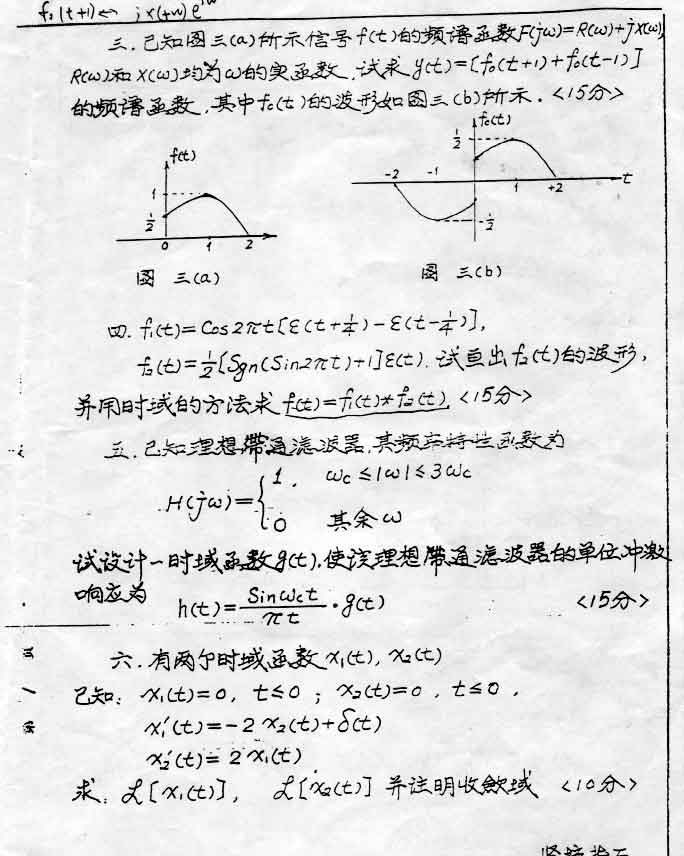 f₀(t+1)↔ jX(+w) e^jω
三.已知图三(a)所示信号f(t)的频谱函数F(jω)=R(ω)+jX(ω),
R(ω)和X(ω)均为ω的实函数,试求y(t)=[f₀(t+1)+f₀(t-1)]
的频谱函数,其中f₀(t)的波形如图三(b)所示.<15分>
f(t)
1
1/2
0 1 2
图 三(a)
f₀(t)
1/2
-2 -1 1 +2 t
-1/2
图 三(b)
四. f₁(t)=Cos2πt[ε(t+1/4)-ε(t-1/4)],
f₂(t)=1/2[Sgn(Sin2πt)+1]ε(t).试画出f₂(t)的波形,
并用时域的方法求f(t)=f₁(t)*f₂(t).<15分>
五.已知理想带通滤波器,其频率特性函数为
H(jω)={1. ωc≤|ω|≤3ωc
0 其余ω
试设计一时域函数g(t),使该理想带通滤波器的单位冲激
响应为 h(t)=Sinωct/πt·g(t) <15分>
六.有两个时域函数x₁(t),x₂(t)
已知: x₁(t)=0, t≤0 ; x₂(t)=0, t≤0,
x₁'(t)=-2x₂(t)+δ(t)
x₂'(t)=2x₁(t)
求: ℒ[x₁(t)], ℒ[x₂(t)]并注明收敛域 <10分>